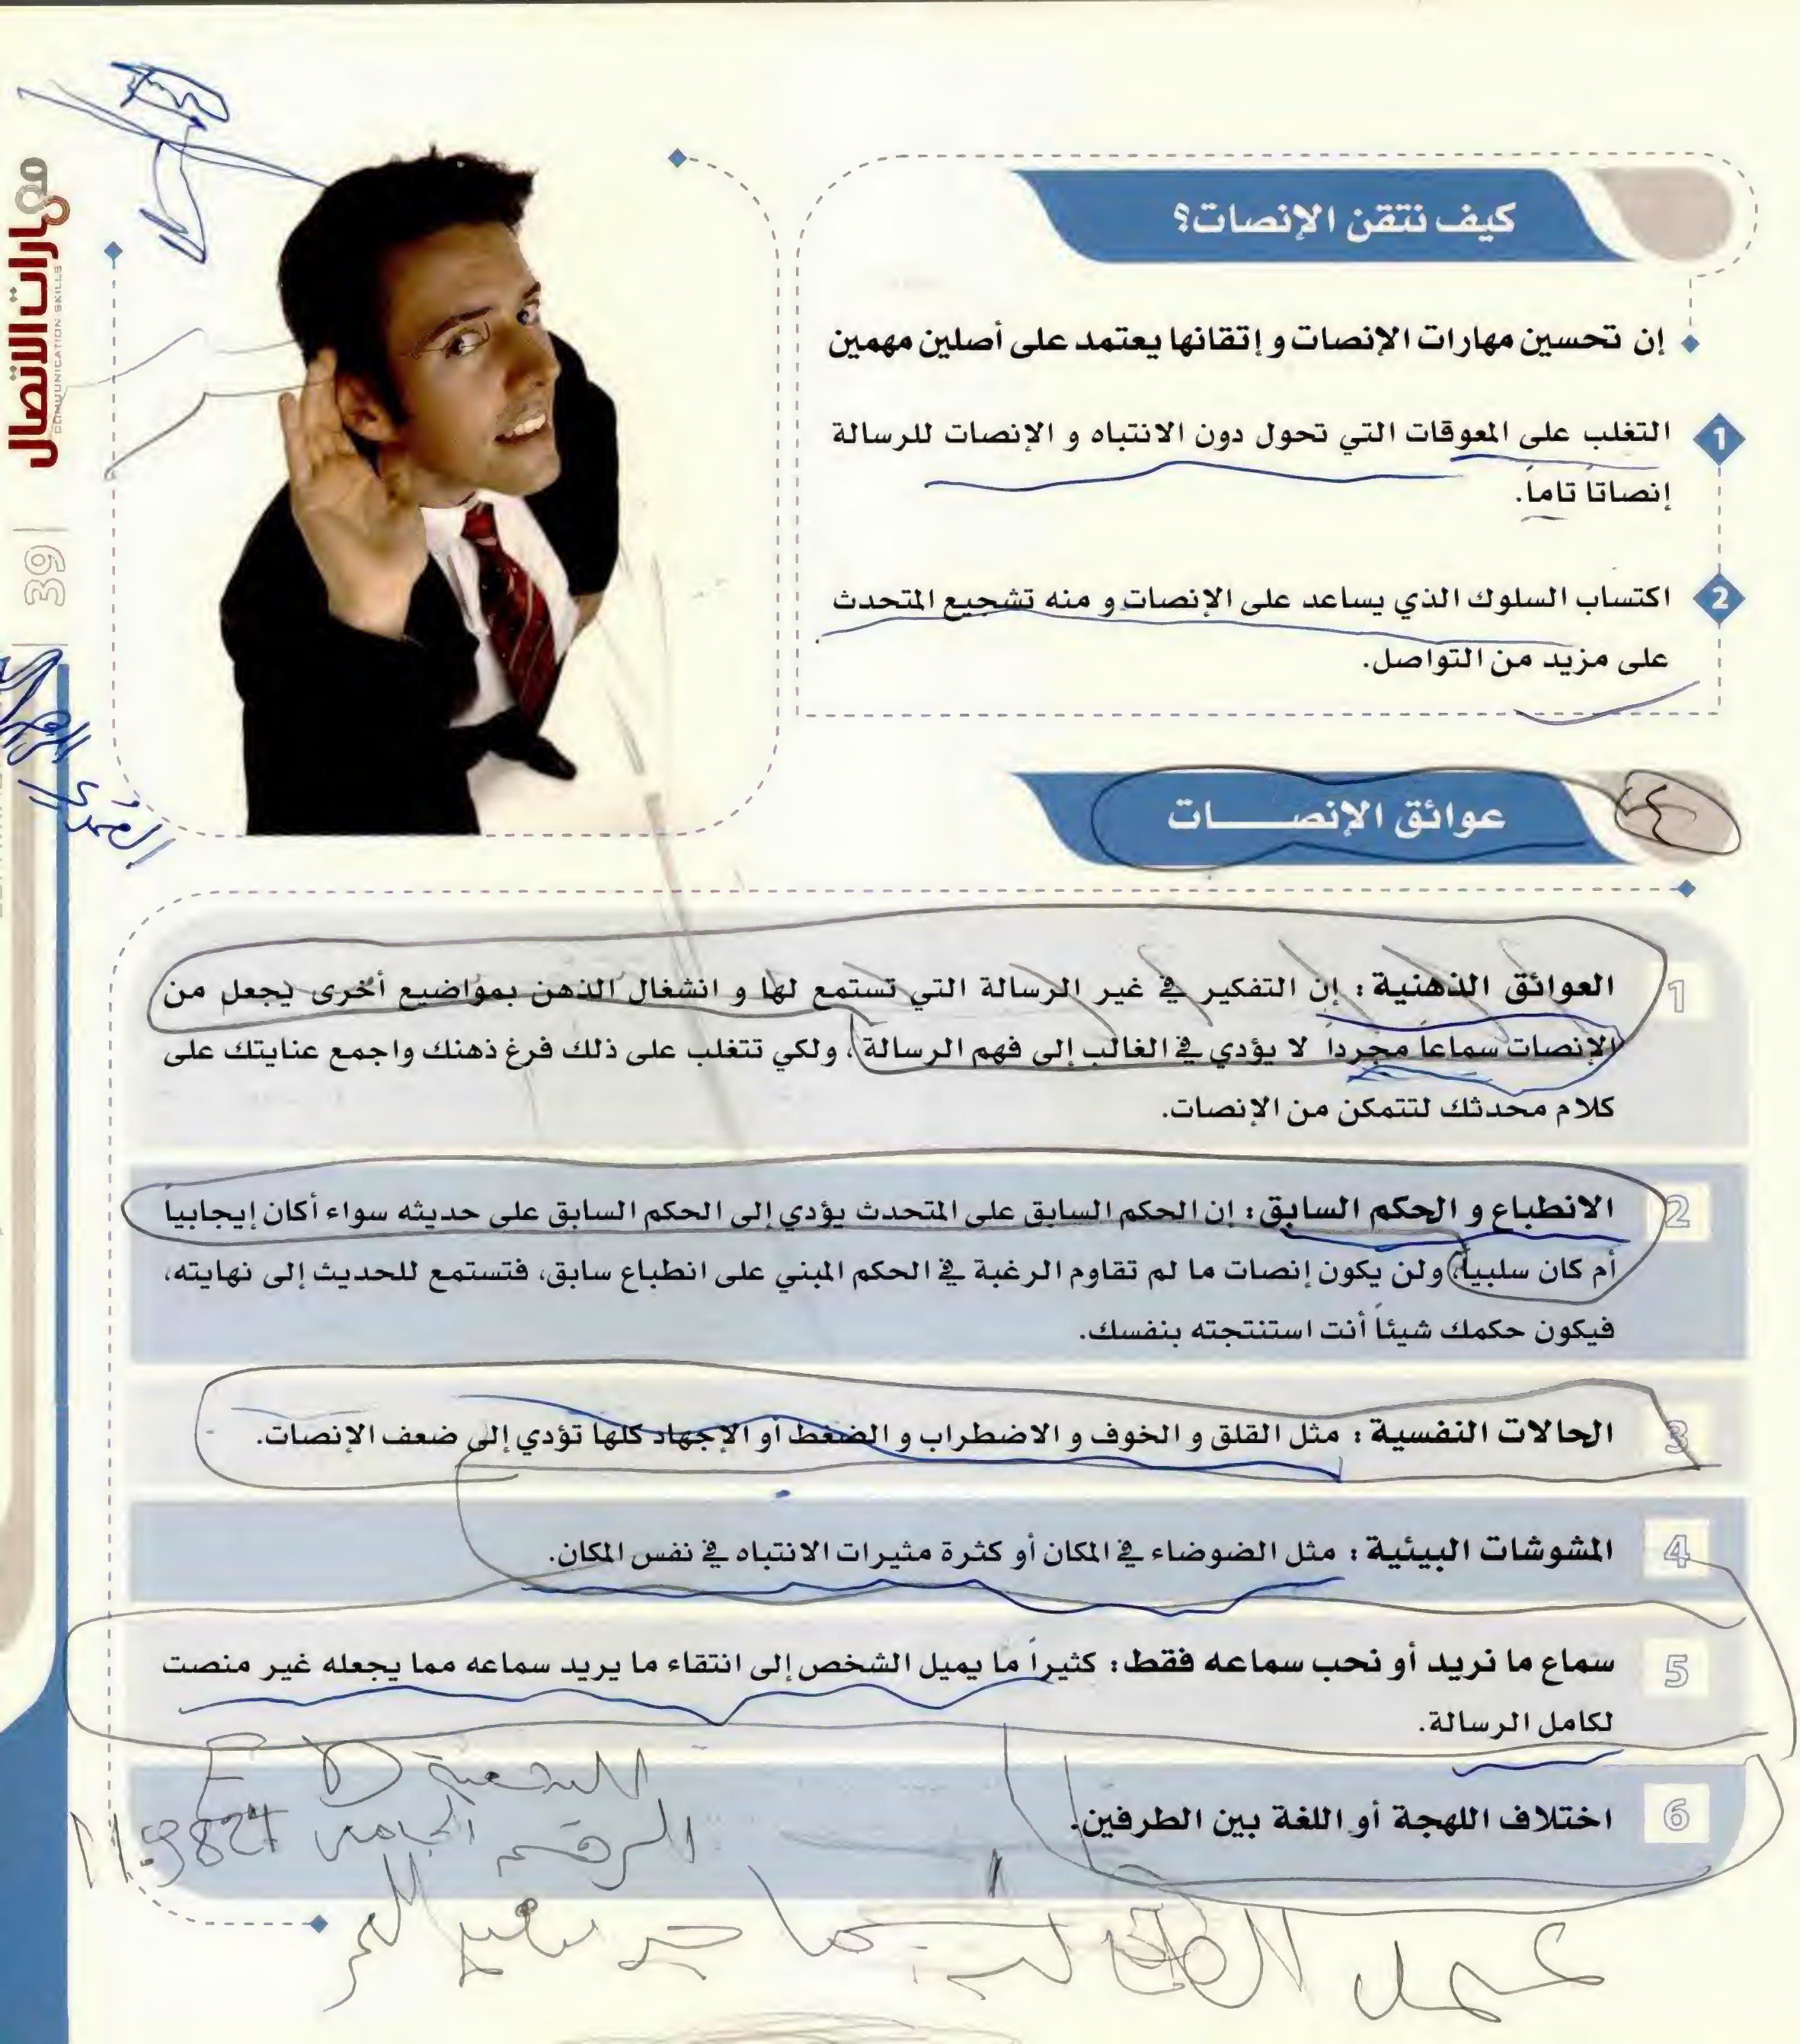 كيف نتقن الإنصات؟
إن تحسين مهارات الإنصات و إتقانها يعتمد على أصلين مهمين
1 التغلب على المعوقات التي تحول دون الانتباه و الإنصات للرسالة
إنصاتاً تاماً.
2 اكتساب السلوك الذي يساعد على الإنصات و منه تشجيع المتحدث
على مزيد من التواصل.
مهارات الاتصال
COMMUNICATION SKILLS
39
عوائق الإنصــــات
1 العوائق الذهنية : إن التفكير في غير الرسالة التي تستمع لها و انشغال الذهن بمواضيع أخرى يجعل من
الإنصات سماعاً مجرداً لا يؤدي في الغالب إلى فهم الرسالة، ولكي تتغلب على ذلك فرغ ذهنك واجمع عنايتك على
كلام محدثك لتتمكن من الإنصات.
2 الانطباع و الحكم السابق : إن الحكم السابق على المتحدث يؤدي إلى الحكم السابق على حديثه سواء أكان إيجابياً
أم كان سلبياً، ولن يكون إنصات ما لم تقاوم الرغبة في الحكم المبني على انطباع سابق، فتستمع للحديث إلى نهايته،
فيكون حكمك شيئاً أنت استنتجته بنفسك.
3 الحالات النفسية : مثل القلق و الخوف و الاضطراب و الضغط أو الإجهاد كلها تؤدي إلى ضعف الإنصات.
4 المشوشات البيئية : مثل الضوضاء في المكان أو كثرة مثيرات الانتباه في نفس المكان.
5 سماع ما نريد أو نحب سماعه فقط : كثيراً ما يميل الشخص إلى انتقاء ما يريد سماعه مما يجعله غير منصت
لكامل الرسالة.
6 اختلاف اللهجة أو اللغة بين الطرفين.
الرقم الجامعي
عمل الطالب